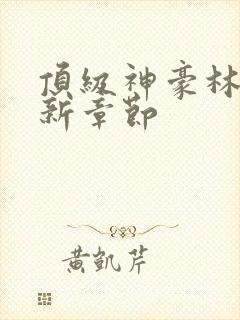 頂級神豪林
新章節
黃凱芹